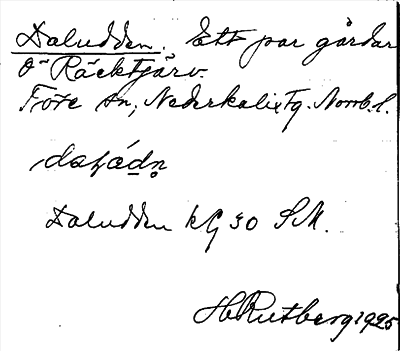 Daludden. Ett par gårdar
Ö Räcktjärv.
Töre sn, Nederkalix Tg. Norrb. l.
Daludden kG 30 S.M.
H Rutberg 1925